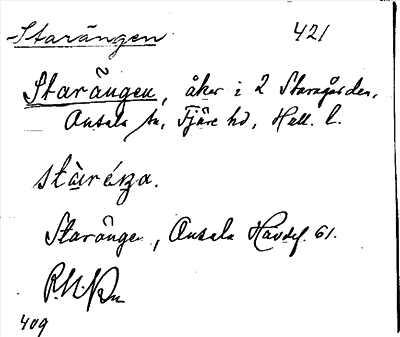 Starängen 421
Starängen, åker i 2 Staragården,
Onsala sn, Fjäre hd, Hall. l.
stàréŋa.
Starånge, Onsala Havdf. 61.
409